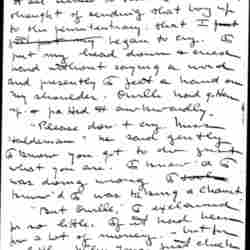 thought of sending that boy up
to the penitentiary, that I
began to cry. I
put my head down & cried
and without saying a word
and presently I felt a hand on
my shoulder. Orville had gotten
up & patted it awkwardly.
"Please don't cry Miss
Halderman" he said gently
"I know you got to do
what you are. I know I
was doing wrong. I
know'd I was taking a chance.
"But Orville," I exclaimed
for so little. If it had been
for a lot of money. — but for